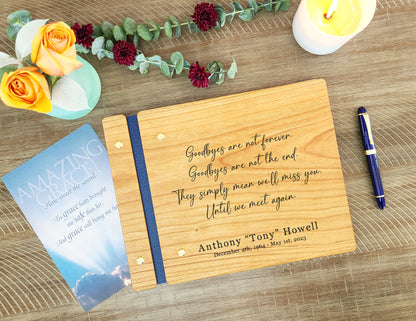 AMAZING
How sweet the sound
To grace hath brought
me safe thus far
And grace will bring me
Goodbyes are not forever.
Goodbyes are not the end.
They simply mean we'll miss you
Until we meet again.
Anthony "Tony" Howell
December 4th, 1964 - May 1st, 2023